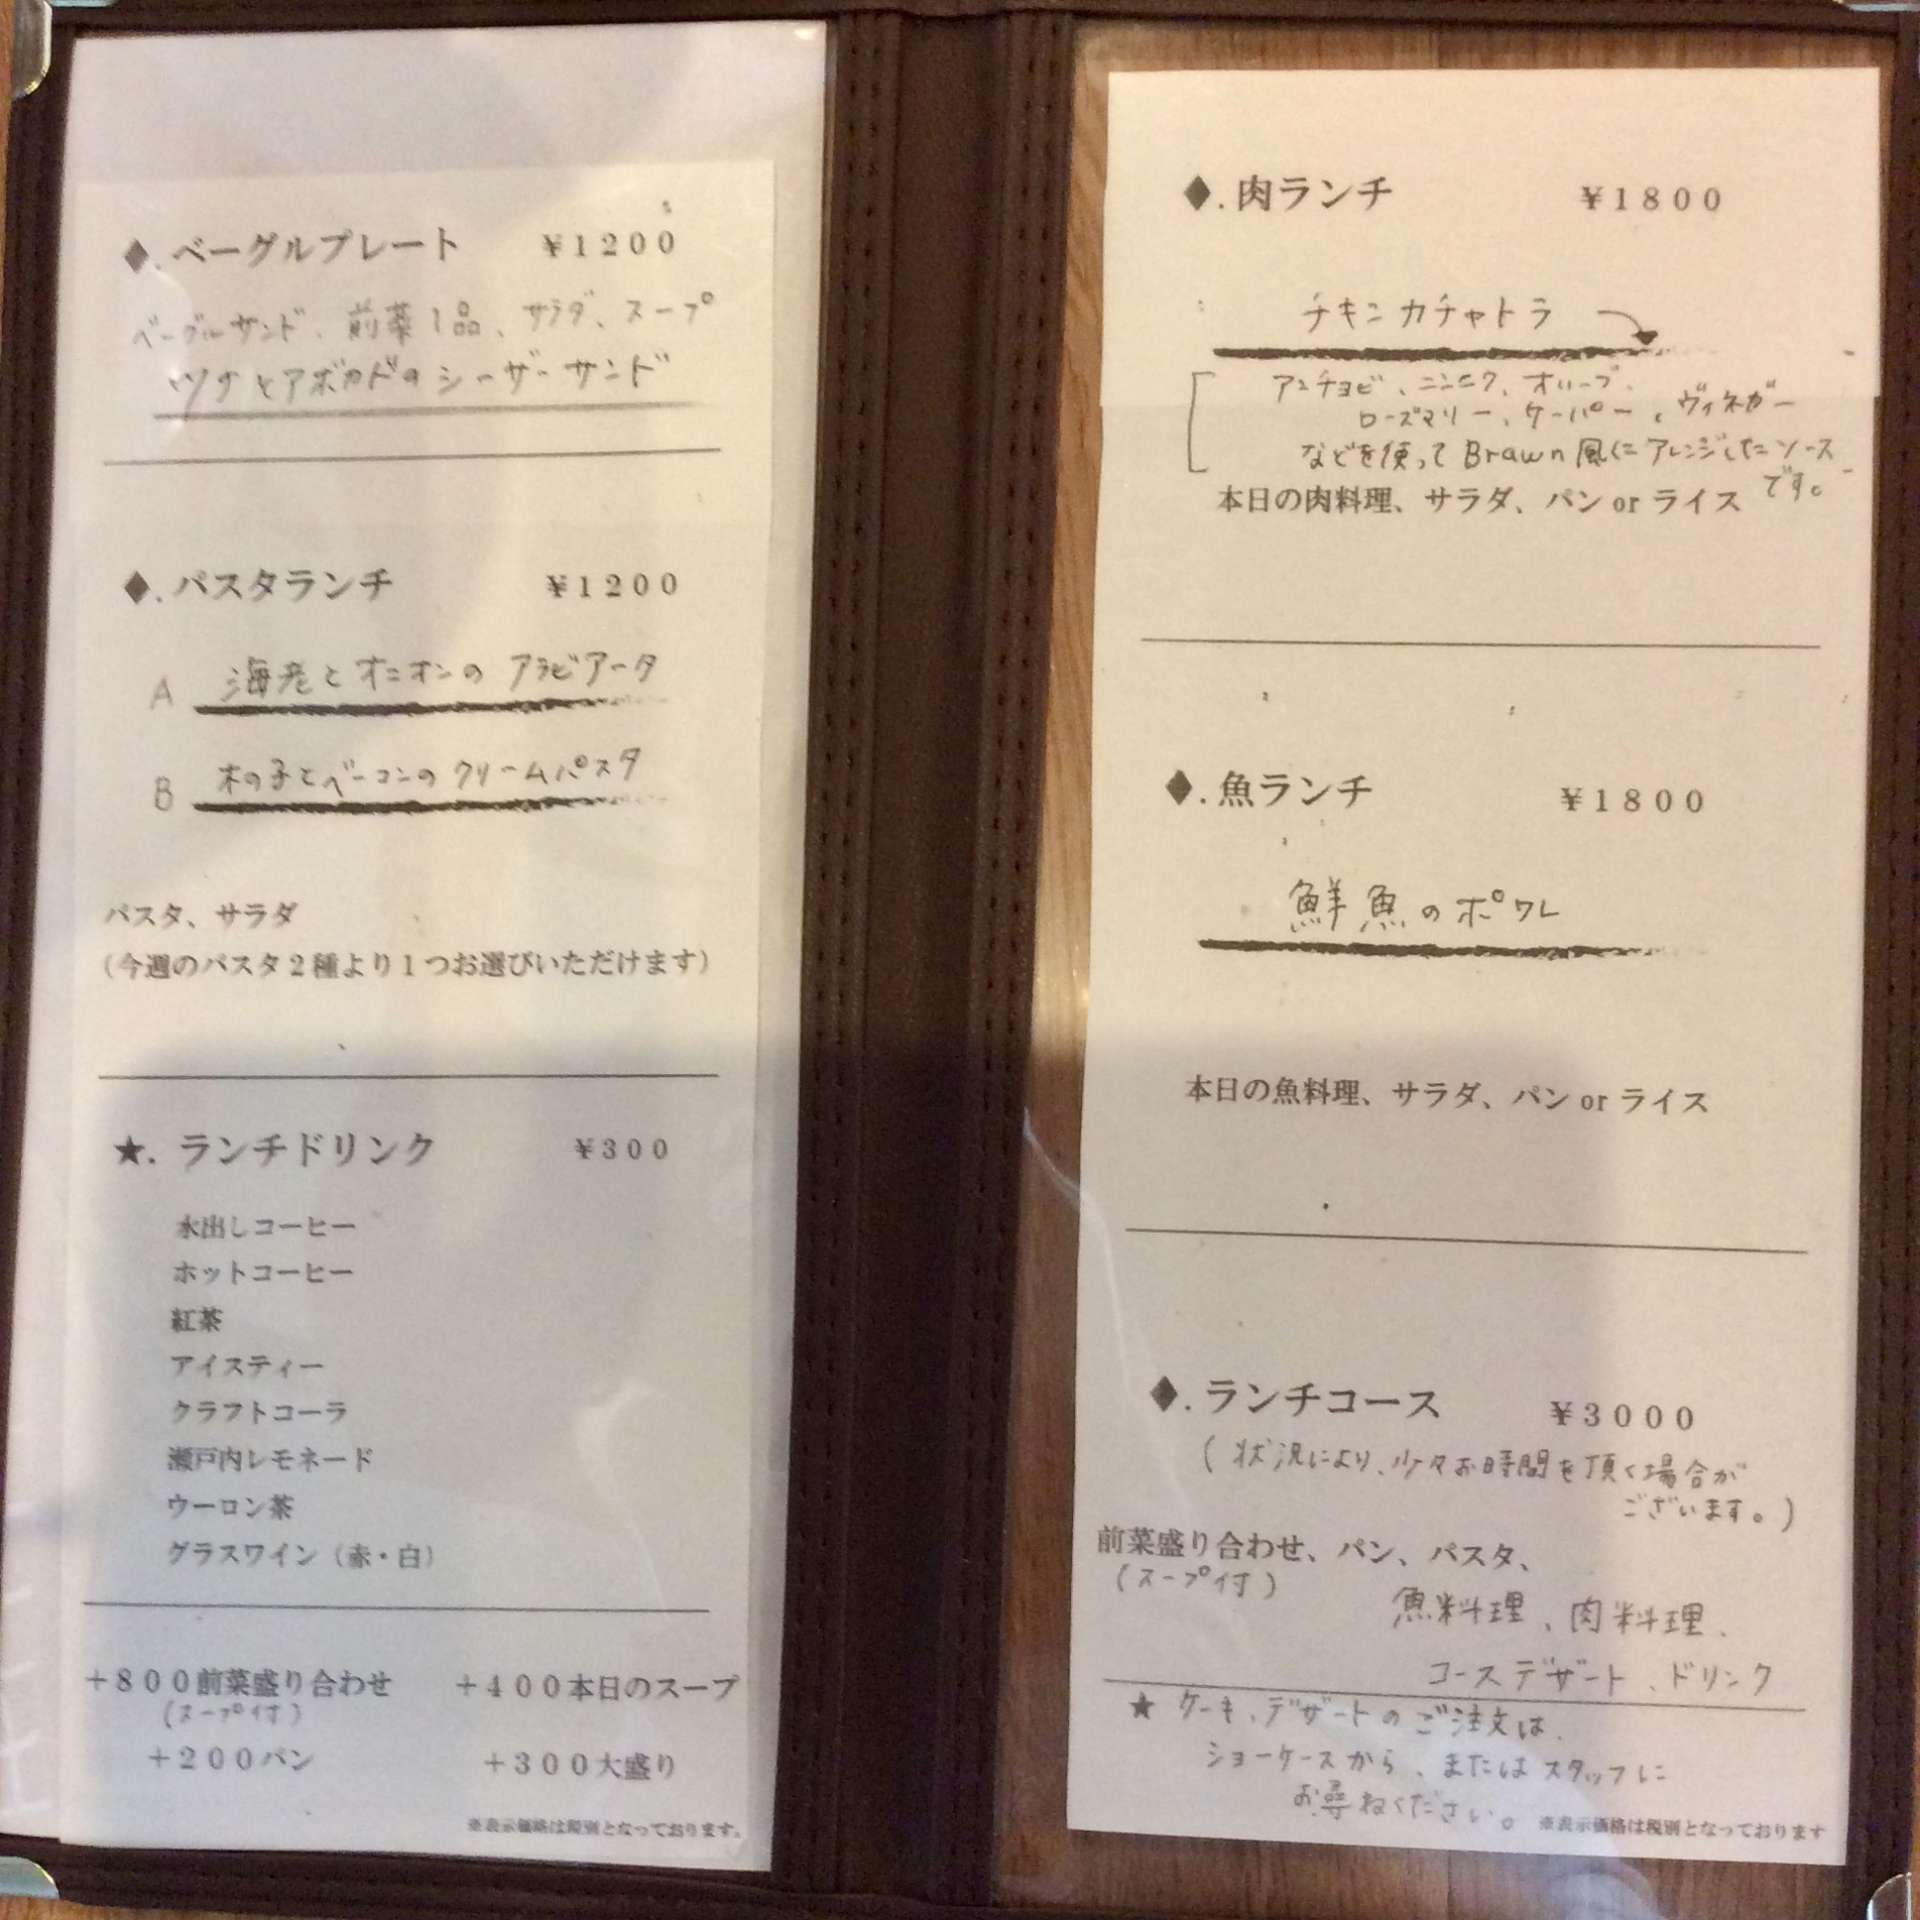 ◆.ベーグルプレート ¥1200
ベーグルサンド、前菜1品、サラダ、スープ
ツナとアボカドのシーザーサンド
◆.パスタランチ ¥1200
A 海老とオニオンのアラビアータ
B 木の子とベーコンのクリームパスタ
パスタ、サラダ
(今週のパスタ2種より1つお選びいただけます)
★.ランチドリンク ¥300
水出しコーヒー
ホットコーヒー
紅茶
アイスティー
クラフトコーラ
瀬戸内レモネード
ウーロン茶
グラスワイン(赤・白)
+800前菜盛り合わせ +400本日のスープ
(スープ付)
+200パン +300大盛り
※表示価格は税別となっております。
◆.肉ランチ ¥1800
チキンカチャトラ
アンチョビ、ニンニク、オリーブ、
ローズマリー、ケーパー、ヴィネガー
などを使ってBrawn風にアレンジしたソース
です。
本日の肉料理、サラダ、パンorライス
◆.魚ランチ ¥1800
鮮魚のポワレ
本日の魚料理、サラダ、パンorライス
◆.ランチコース ¥3000
(状況により、少々お時間を頂く場合が
ございます。)
前菜盛り合わせ、パン、パスタ、
(スープ付)
魚料理、肉料理、
コースデザート、ドリンク
★ ケーキ、デザートのご注文は、
ショーケースから、またはスタッフに
お尋ねください。
※表示価格は税別となっております